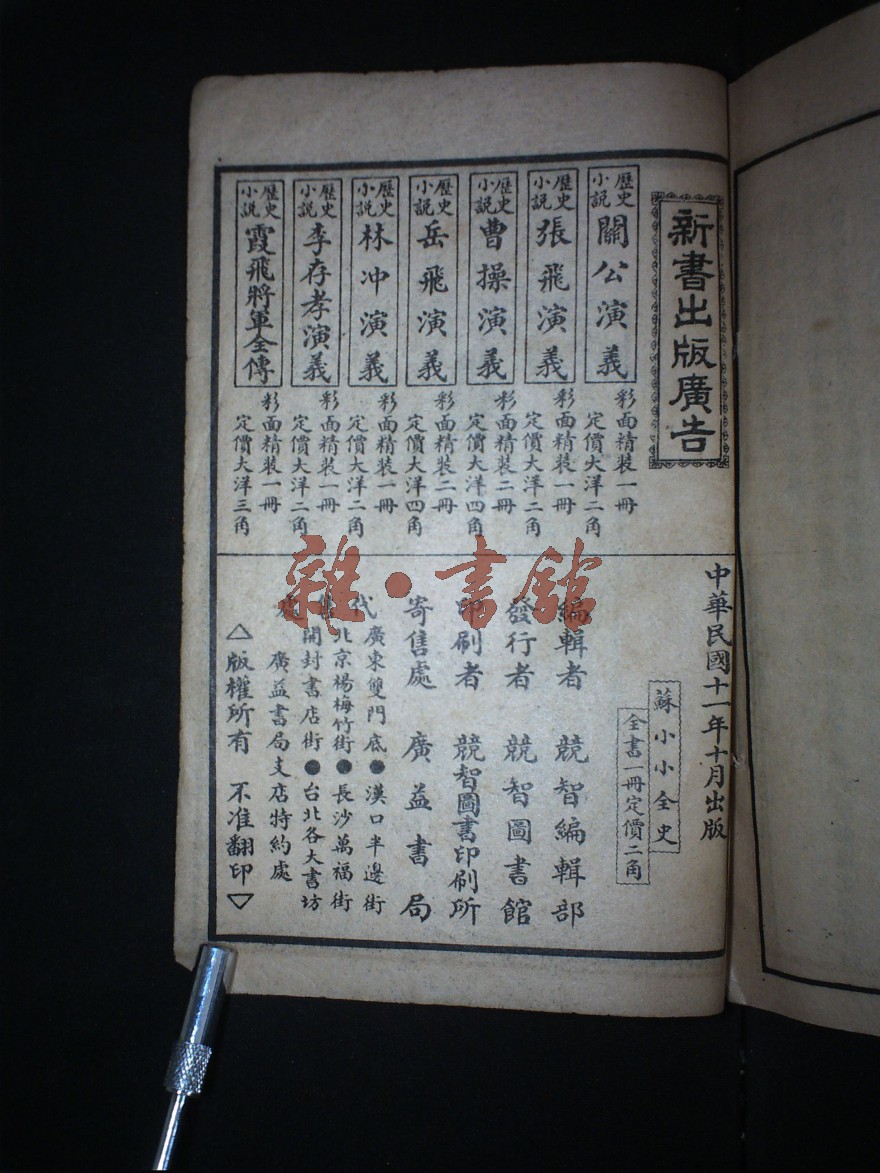 新書出版廣告
歷史小説 關公演義 彩面精裝一冊 定價大洋二角
歷史小説 張飛演義 彩面精裝一冊 定價大洋二角
歷史小説 曹操演義 彩面精裝二冊 定價大洋四角
歷史小説 岳飛演義 彩面精裝二冊 定價大洋四角
歷史小説 林冲演義 彩面精裝一冊 定價大洋二角
歷史小説 李存孝演義 彩面精裝一冊 定價大洋二角
歷史小説 霞飛將軍全傳 彩面精裝一冊 定價大洋三角
中華民國十一年十月出版
蘇小小全史
全書一冊定價二角
編輯者 競智編輯部
發行者 競智圖書館
印刷者 競智圖書印刷所
寄售處 廣益書局
代售處
廣東雙門底●漢口半邊街
北京楊梅竹街●長沙萬福街
開封書店街●台北各大書坊
廣益書局支店特約處
△版權所有 不准翻印▽
雜·書館